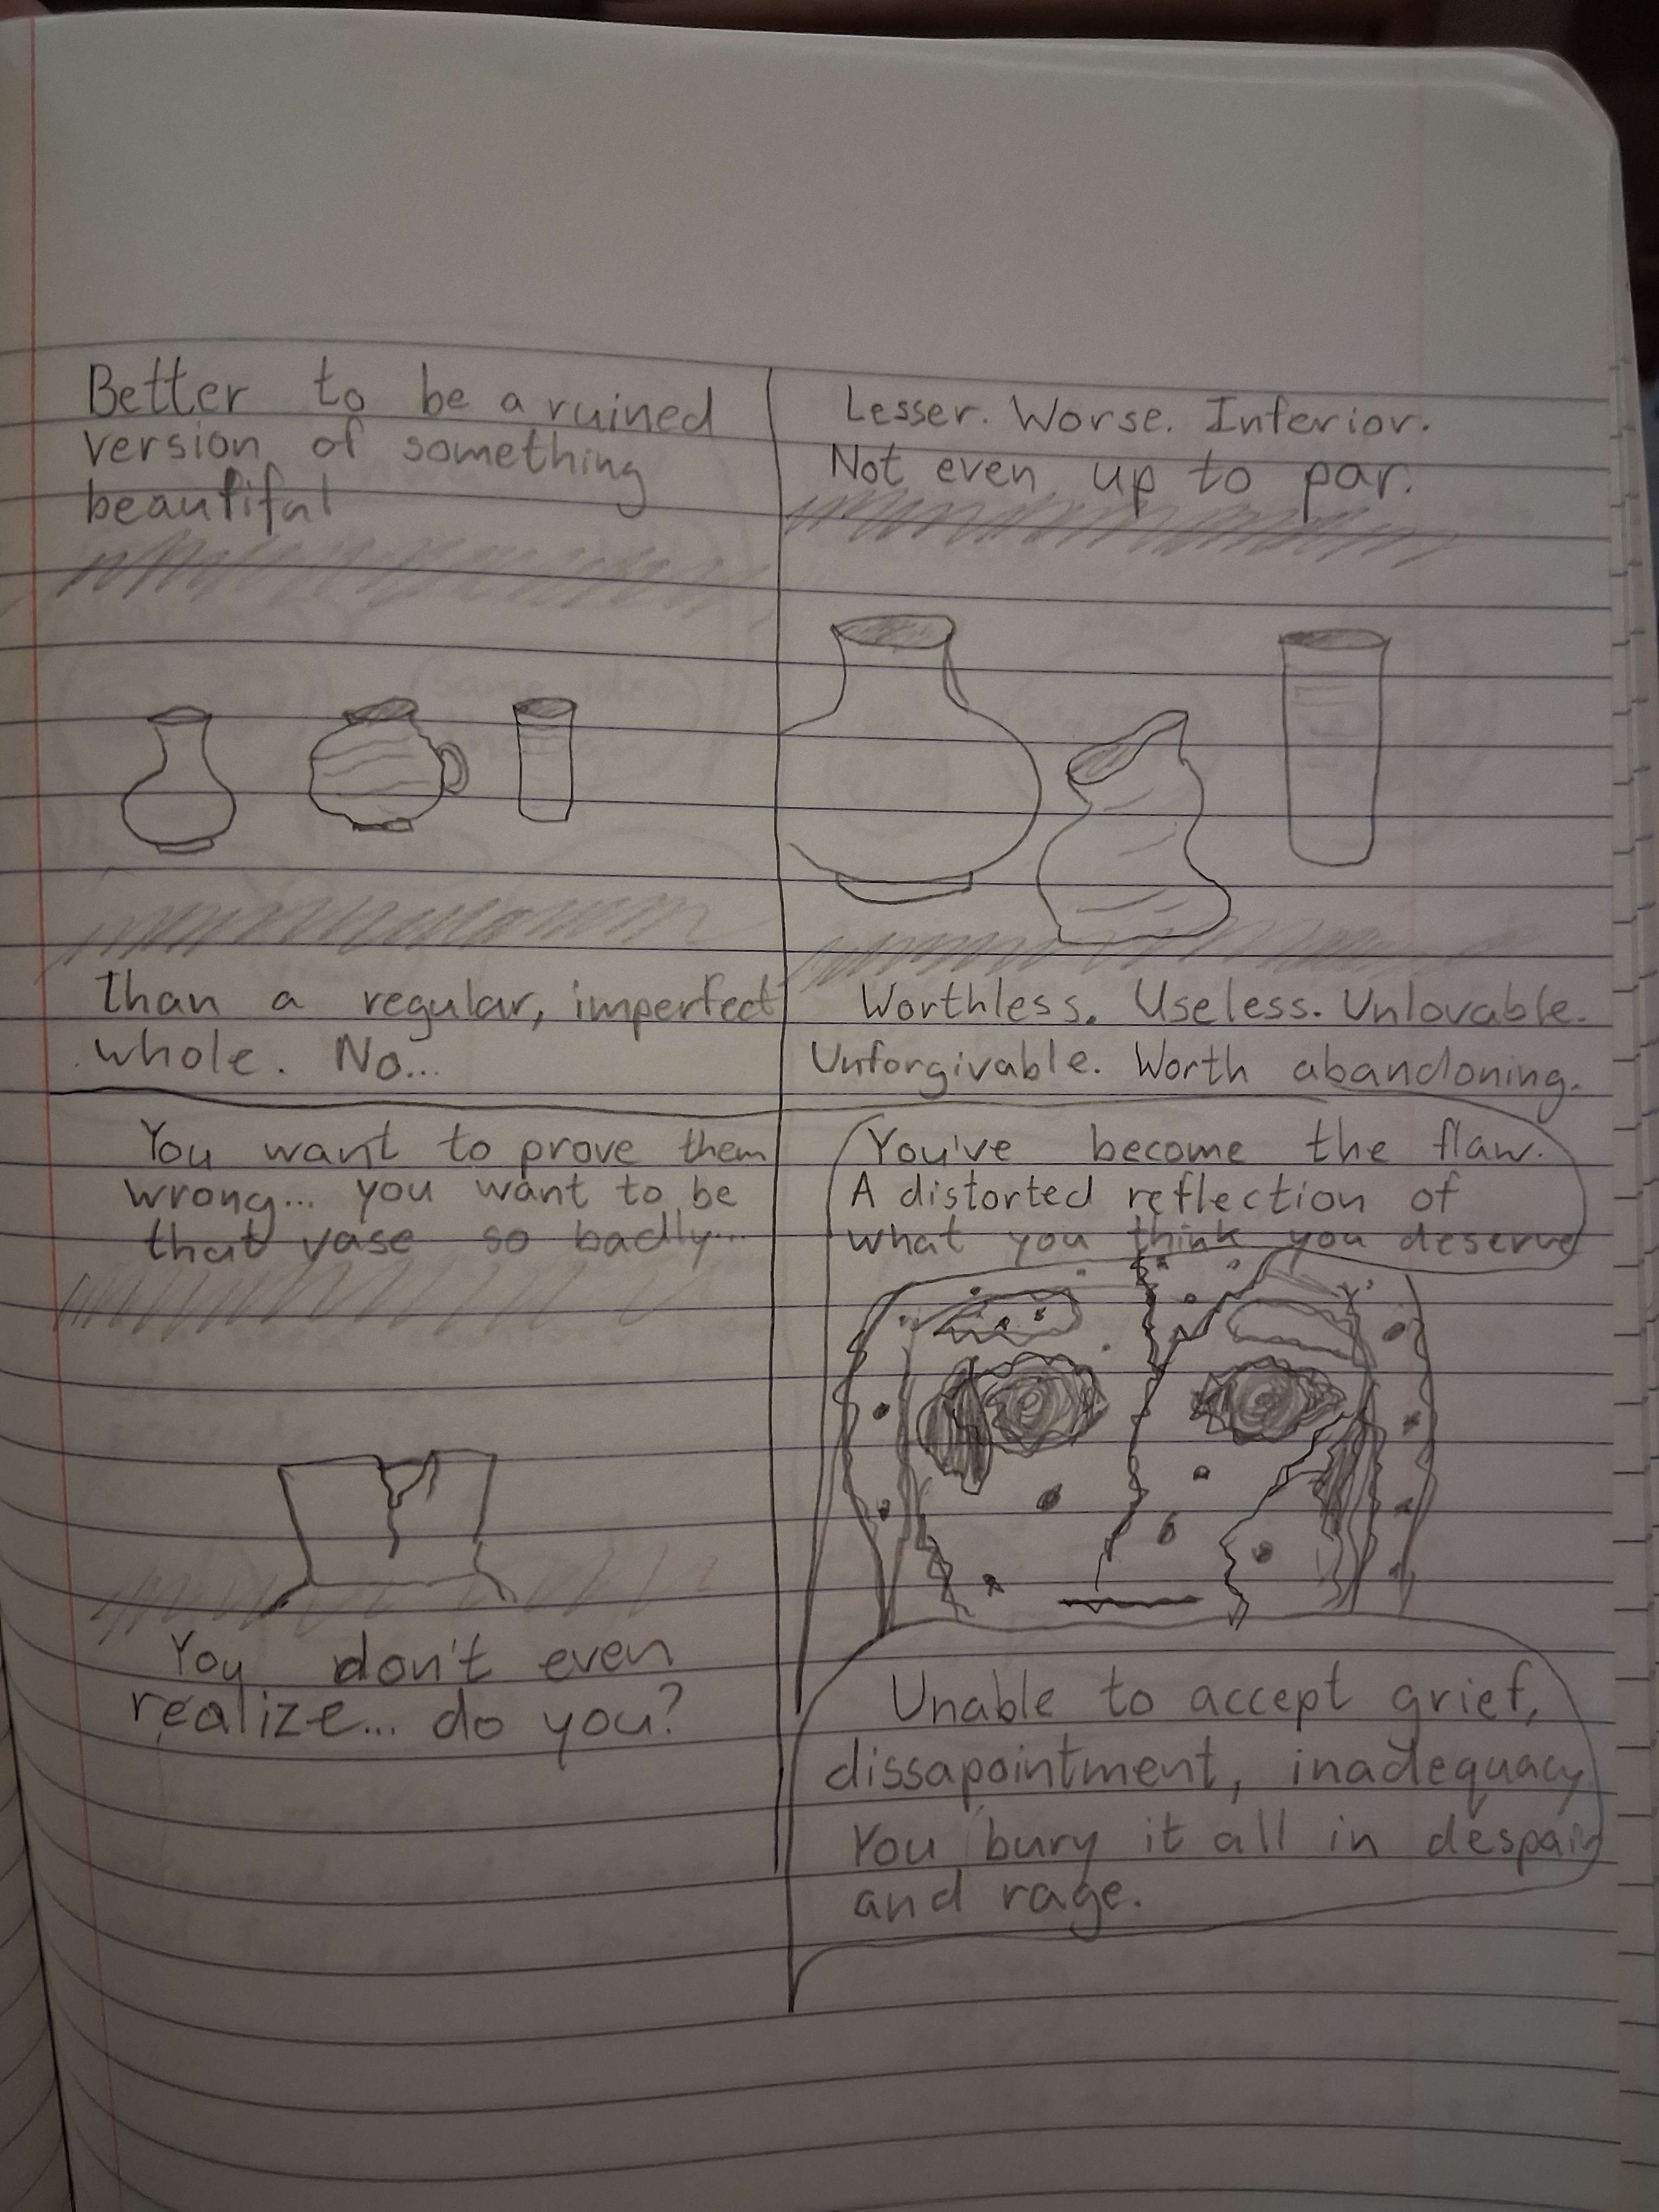 Better to be a ruined
version of something
beautifal
than a regular, imperfect
whole. No...
Lesser. Worse. Inferior.
Not even up to par.
Worthless. Useless. Unlovable.
Unforgivable. Worth abandoning.
You want to prove them
wrong... you want to be
that vase so badly...
You don't even
realize... do you?
You've become the flaw.
A distorted reflection of
what you think you deserve
Unable to accept grief,
dissapointment, inadequacy
You bury it all in despair
and rage.